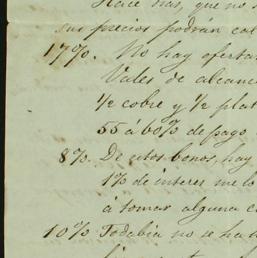 Hace días, que no
sus precios podrán cal
17%. No hay ofertas
Vales de alcance
½ cobre y ½ plat
55 á 60% de pago
8%. De estos bonos, hay
1% de interes me lo
á tomar alguna c
10% Todabia no se ha